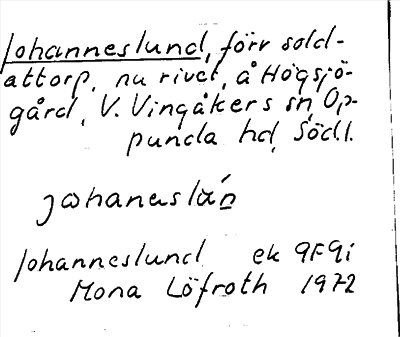 Johanneslund, förv sold-
attorp, nu rivet, å Högsjö-
gård, V. Vingåkers sn, Op-
punda hd, Södl.
Johanneslund ek 9F9i
Mona Löfroth 1972